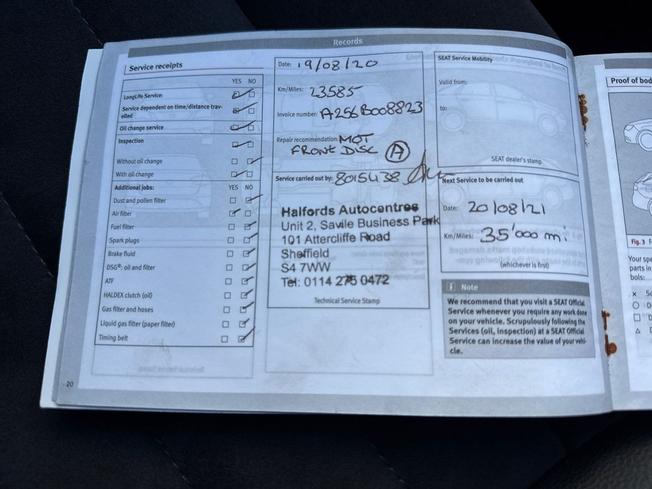 Records
Service receipts
YES NO
LongLife Service:
Service dependent on time/distance trav-
elled
Oil change service
Inspection
Without oil change
With oil change
Additional jobs: YES NO
Dust and pollen filter
Air filter
Fuel filter
Spark plugs
Brake fluid
DSG®: oil and filter
ATF
HALDEX clutch (oil)
Gas filter and hoses
Liquid gas filter (paper filter)
Timing belt
20
Date: 19/08/20
Km/Miles: 23585
Invoice number: A256B008823
Repair recommendation: MOT
FRONT DISC A
Service carried out by: 8015438
Halfords Autocentres
Unit 2, Savile Business Park
101 Attercliffe Road
Sheffield
S4 7WW
Tel: 0114 275 0472
Technical Service Stamp
SEAT Service Mobility
Valid from:
to:
SEAT dealer's stamp
Next Service to be carried out
Date: 20/08/21
Km/Miles: 35'000 mi
(whichever is first)
i Note
We recommend that you visit a SEAT Official
Service whenever you require any work done
on your vehicle. Scrupulously following the
Services (oil, inspection) at a SEAT Official
Service can increase the value of your vehi-
cle.
Proof of bod
Fig. 3
Your spe
parts in
bols: